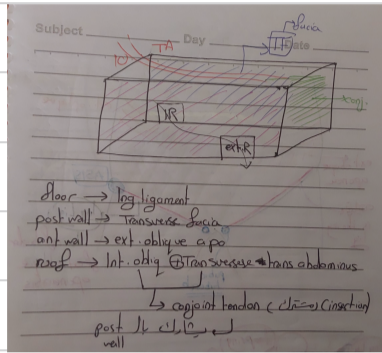 Subject Day Date
fascia
IO TA TF
conj.
IR
ext.R
floor → Ing ligament
post wall → Transverse fascia
ant wall → ext. oblique apo
roof → Int. obliq ⊕ Transversus trans abdominus
↳ conjoint tendon (مشترك) (insertion)
post wall لـ بيشارك بالـ